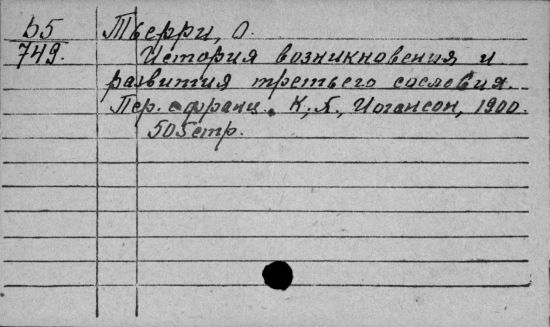 Б5
749.
Тьерри, О.
История возникновения и
развития третьего сословия.
Пер. с франц. К., Б., Иогансон, 1900.
505 стр.